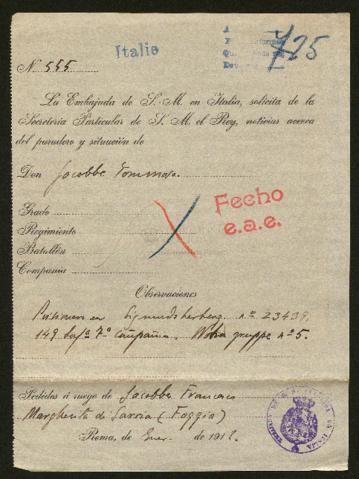 Italie
725
Nº 555
La Embajada de S. M. en Italia, solicita de la
Secretería Particular de S. M. el Rey, noticias acerca
del paradero y situación de
Don Jacobbe Tommaso
Grado
Regimiento
Batallón
Compañía
Fecho
e.a.e.
Observaciones
Prisionero en Sigmundsherberg nº 23439,
149 7ª Compañia. gruppe nº 5.
Pedidas á ruego de Jacobbe Francesco
Margherita di Savoia (Foggia)
Roma, de Ener. de 191